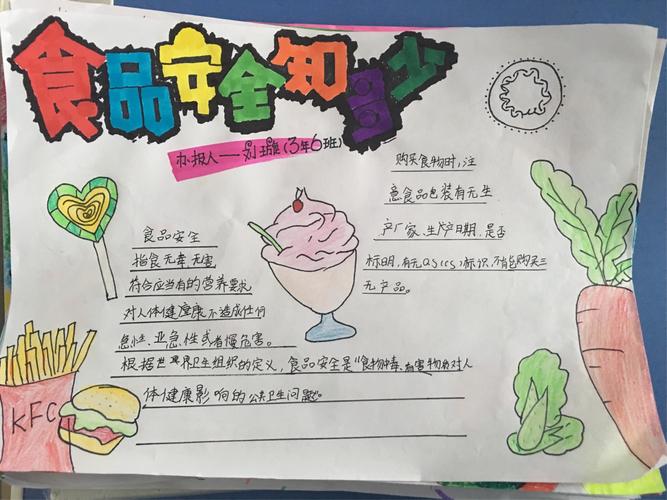 食品安全知多少
办报人——刘璇(3年6班)
购买食物时,注
意食品包装有无生
产厂家、生产日期,是否
标明,有无qs(cs)标识,不能购买三
无产品。
食品安全
指食无毒,无害
符合应当有的营养要求
对人体健康不造成任何
急性、亚急性或者慢危害。
根据世界卫生组织的定义,食品安全是"食物中毒、有害物质对人
体健康影响的公共卫生问题"。
KFC